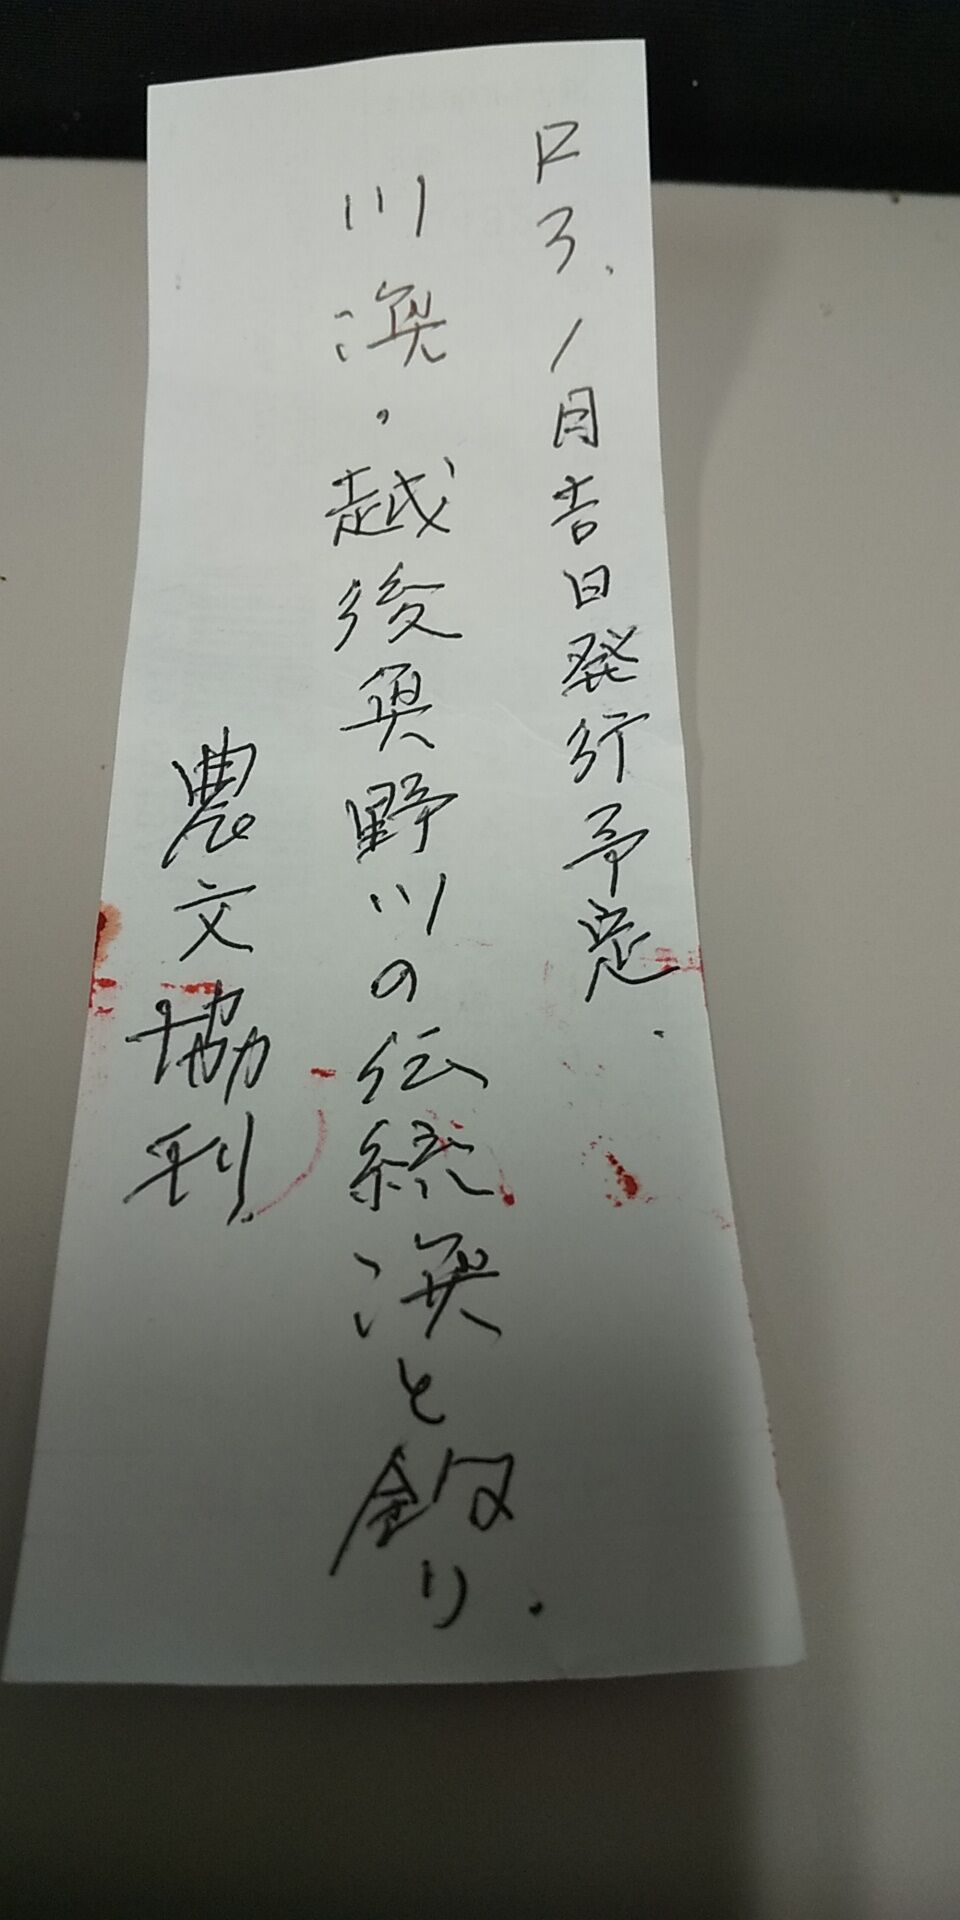 R3.1月吉日発行予定.
川漁.越後魚野川の伝統漁と釣り.
農文協刊.